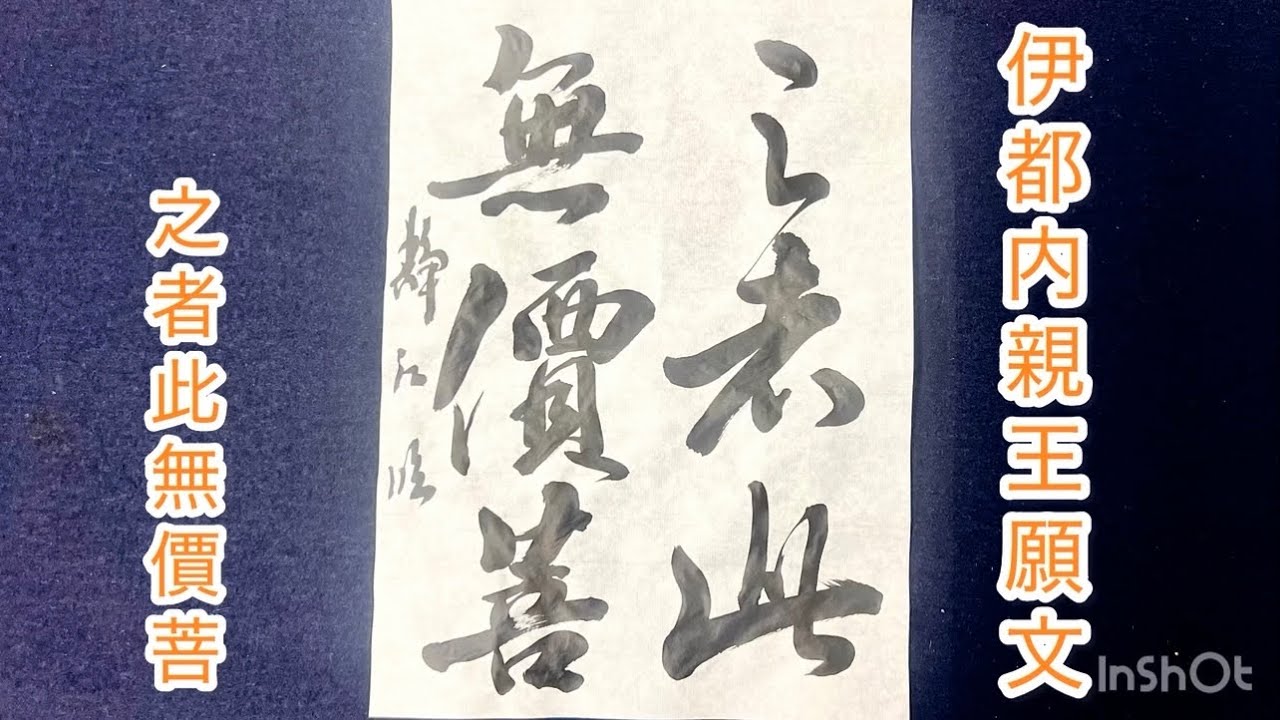 伊都内親王願文
之者此
無價菩
之者此無價菩
InShOt